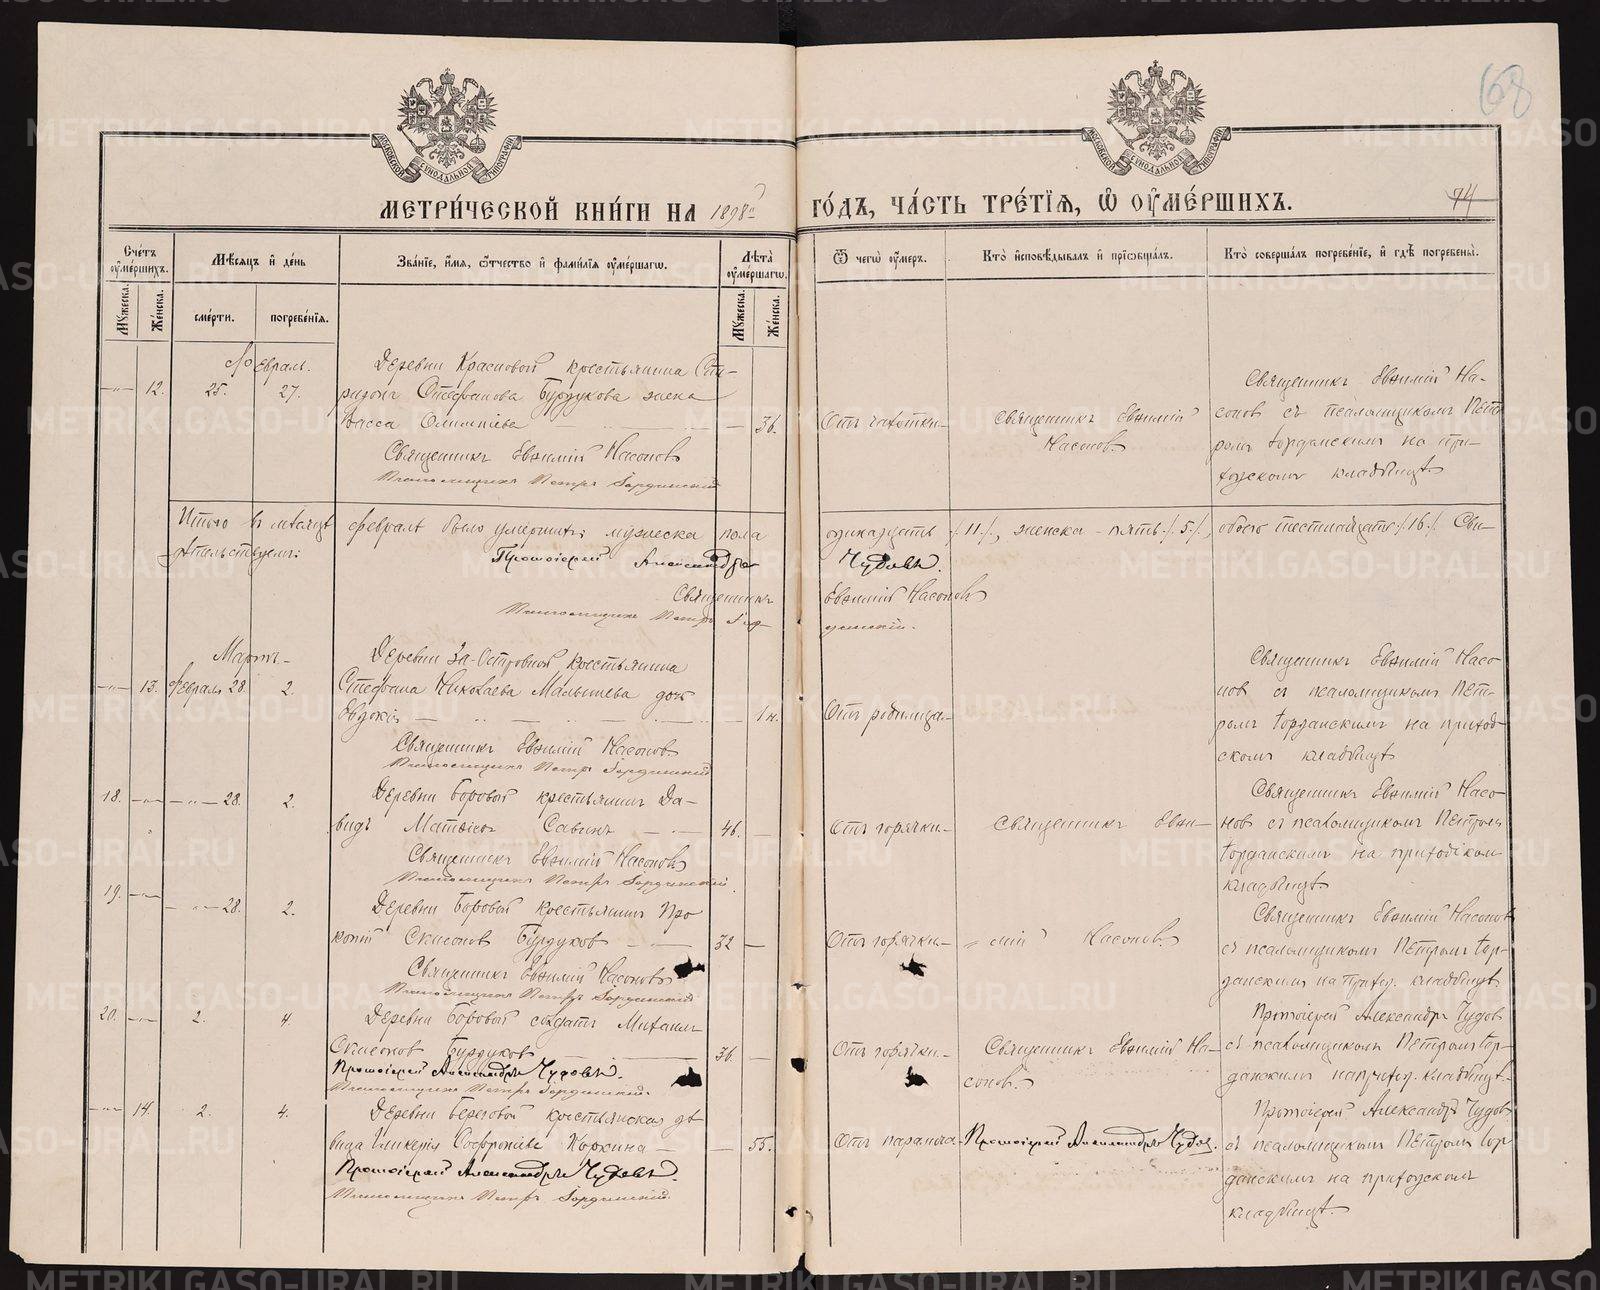 68
74
МОСКОВСКОЙ СУНОДАЛЬНОЙ ТИПОГРАФІИ
МОСКОВСКОЙ СУНОДАЛЬНОЙ ТИПОГРАФІИ
МЕТРИ́ЧЕСКОЙ КНИ́ГИ НА 1898й ГО́ДЪ, ЧА́СТЬ ТРЕ́ТІЯ, Ѡ҆ ОУ҆МЕ́РШИХЪ.
Сче́тъ оу҆ме́ршихъ.
Мѣ́сяцъ и҆ де́нь
Зва́нїе, и҆́мѧ, ѻ҆́тчество и҆ фами́лїѧ оу҆ме́ршагѡ.
Лѣ́та оу҆ме́ршагѡ.
Ѿ чегѡ̀ оу҆́меръ.
Кто̀ и҆сповѣ́дывалъ и҆ прїѡбща́лъ.
Кто̀ соверша́лъ погребе́нїе, и҆ гдѣ̀ погребены̀.
Мꙋ́жеска.
Же́нска.
сме́рти.
погребе́нїѧ.
Мꙋ́жеска.
Же́нска.
Февраль.
12. 25. 27.
Деревни Красновой крестьянина Спи-
ридона Стефанова Бурдукова жена
Васса Олимпіева 36.
Священникъ Евѳимій Насоновъ
Псаломщикъ Петръ Іорданскій
Отъ чахотки
Священникъ Евѳимій
Насоновъ.
Священникъ Евѳимій На-
соновъ съ псаломщикомъ Пет-
ромъ Іорданскимъ на при-
ходскомъ кладбищѣ
Итого въ мѣсяцѣ февралѣ было умершихъ: мужеска пола одинадцать /11/, женска - пять /5/, обоего шестнадцать /16/. Сви-
дѣтельствуемъ:
Протоіерей Александръ Чудовъ.
Священникъ Евѳимій Насоновъ
Псаломщикъ Петръ Іорданскій.
Мартъ
13. Февраля 28. 2.
Деревни За-Островной крестьянина
Стефана Николаева Малышева дочь
Евдокія 1 н.
Священникъ Евѳимій Насоновъ
Псаломщикъ Петръ Іорданскій
Отъ родимца
Священникъ Евѳимій Насо-
новъ съ псаломщикомъ Пет-
ромъ Іорданскимъ на приход-
скомъ кладбищѣ
18. 28. 2.
Деревни Боровой крестьянинъ Да-
видъ Савинъ 46.
Священникъ Евѳимій Насоновъ
Псаломщикъ Петръ Іорданскій
Отъ горячки
Священникъ Евѳи-
Священникъ Евѳимій Насо-
новъ съ псаломщикомъ Петромъ
Іорданскимъ на приходскомъ
кладбищѣ
19. 28. 2.
Деревни Боровой крестьянинъ Про
копій Симеоновъ Бурдуковъ 32
Священникъ Евѳимій Насоновъ
Псаломщикъ Петръ Іорданскій
Отъ горячки
мій Насоновъ
Священникъ Евѳимій Насоновъ
съ псаломщикомъ Петромъ Іор-
данскимъ на приход. кладбищѣ
20. 2. 4.
Деревни Боровой солдатъ Михаилъ
Симеоновъ Бурдуковъ 36.
Протоіерей Александръ Чудовъ.
Псаломщикъ Петръ Іорданскій.
Отъ горячки
Священникъ Евѳимій На-
соновъ.
Протоіерей Александръ Чудовъ
съ псаломщикомъ Петромъ Іор-
данскимъ на приход. кладбищѣ
14. 2. 4.
Деревни Береговой крестьянская дѣ
вица Гликерія Софроніева Коркина 55.
Протоіерей Александръ Чудовъ.
Псаломщикъ Петръ Іорданскій.
Отъ паралича
Протоіерей Александръ Чудовъ.
Протоіерей Александръ Чудовъ
съ псаломщикомъ Петромъ Іор
данскимъ на приходскомъ
кладбищѣ
METRIKI.GASO-URAL.RU